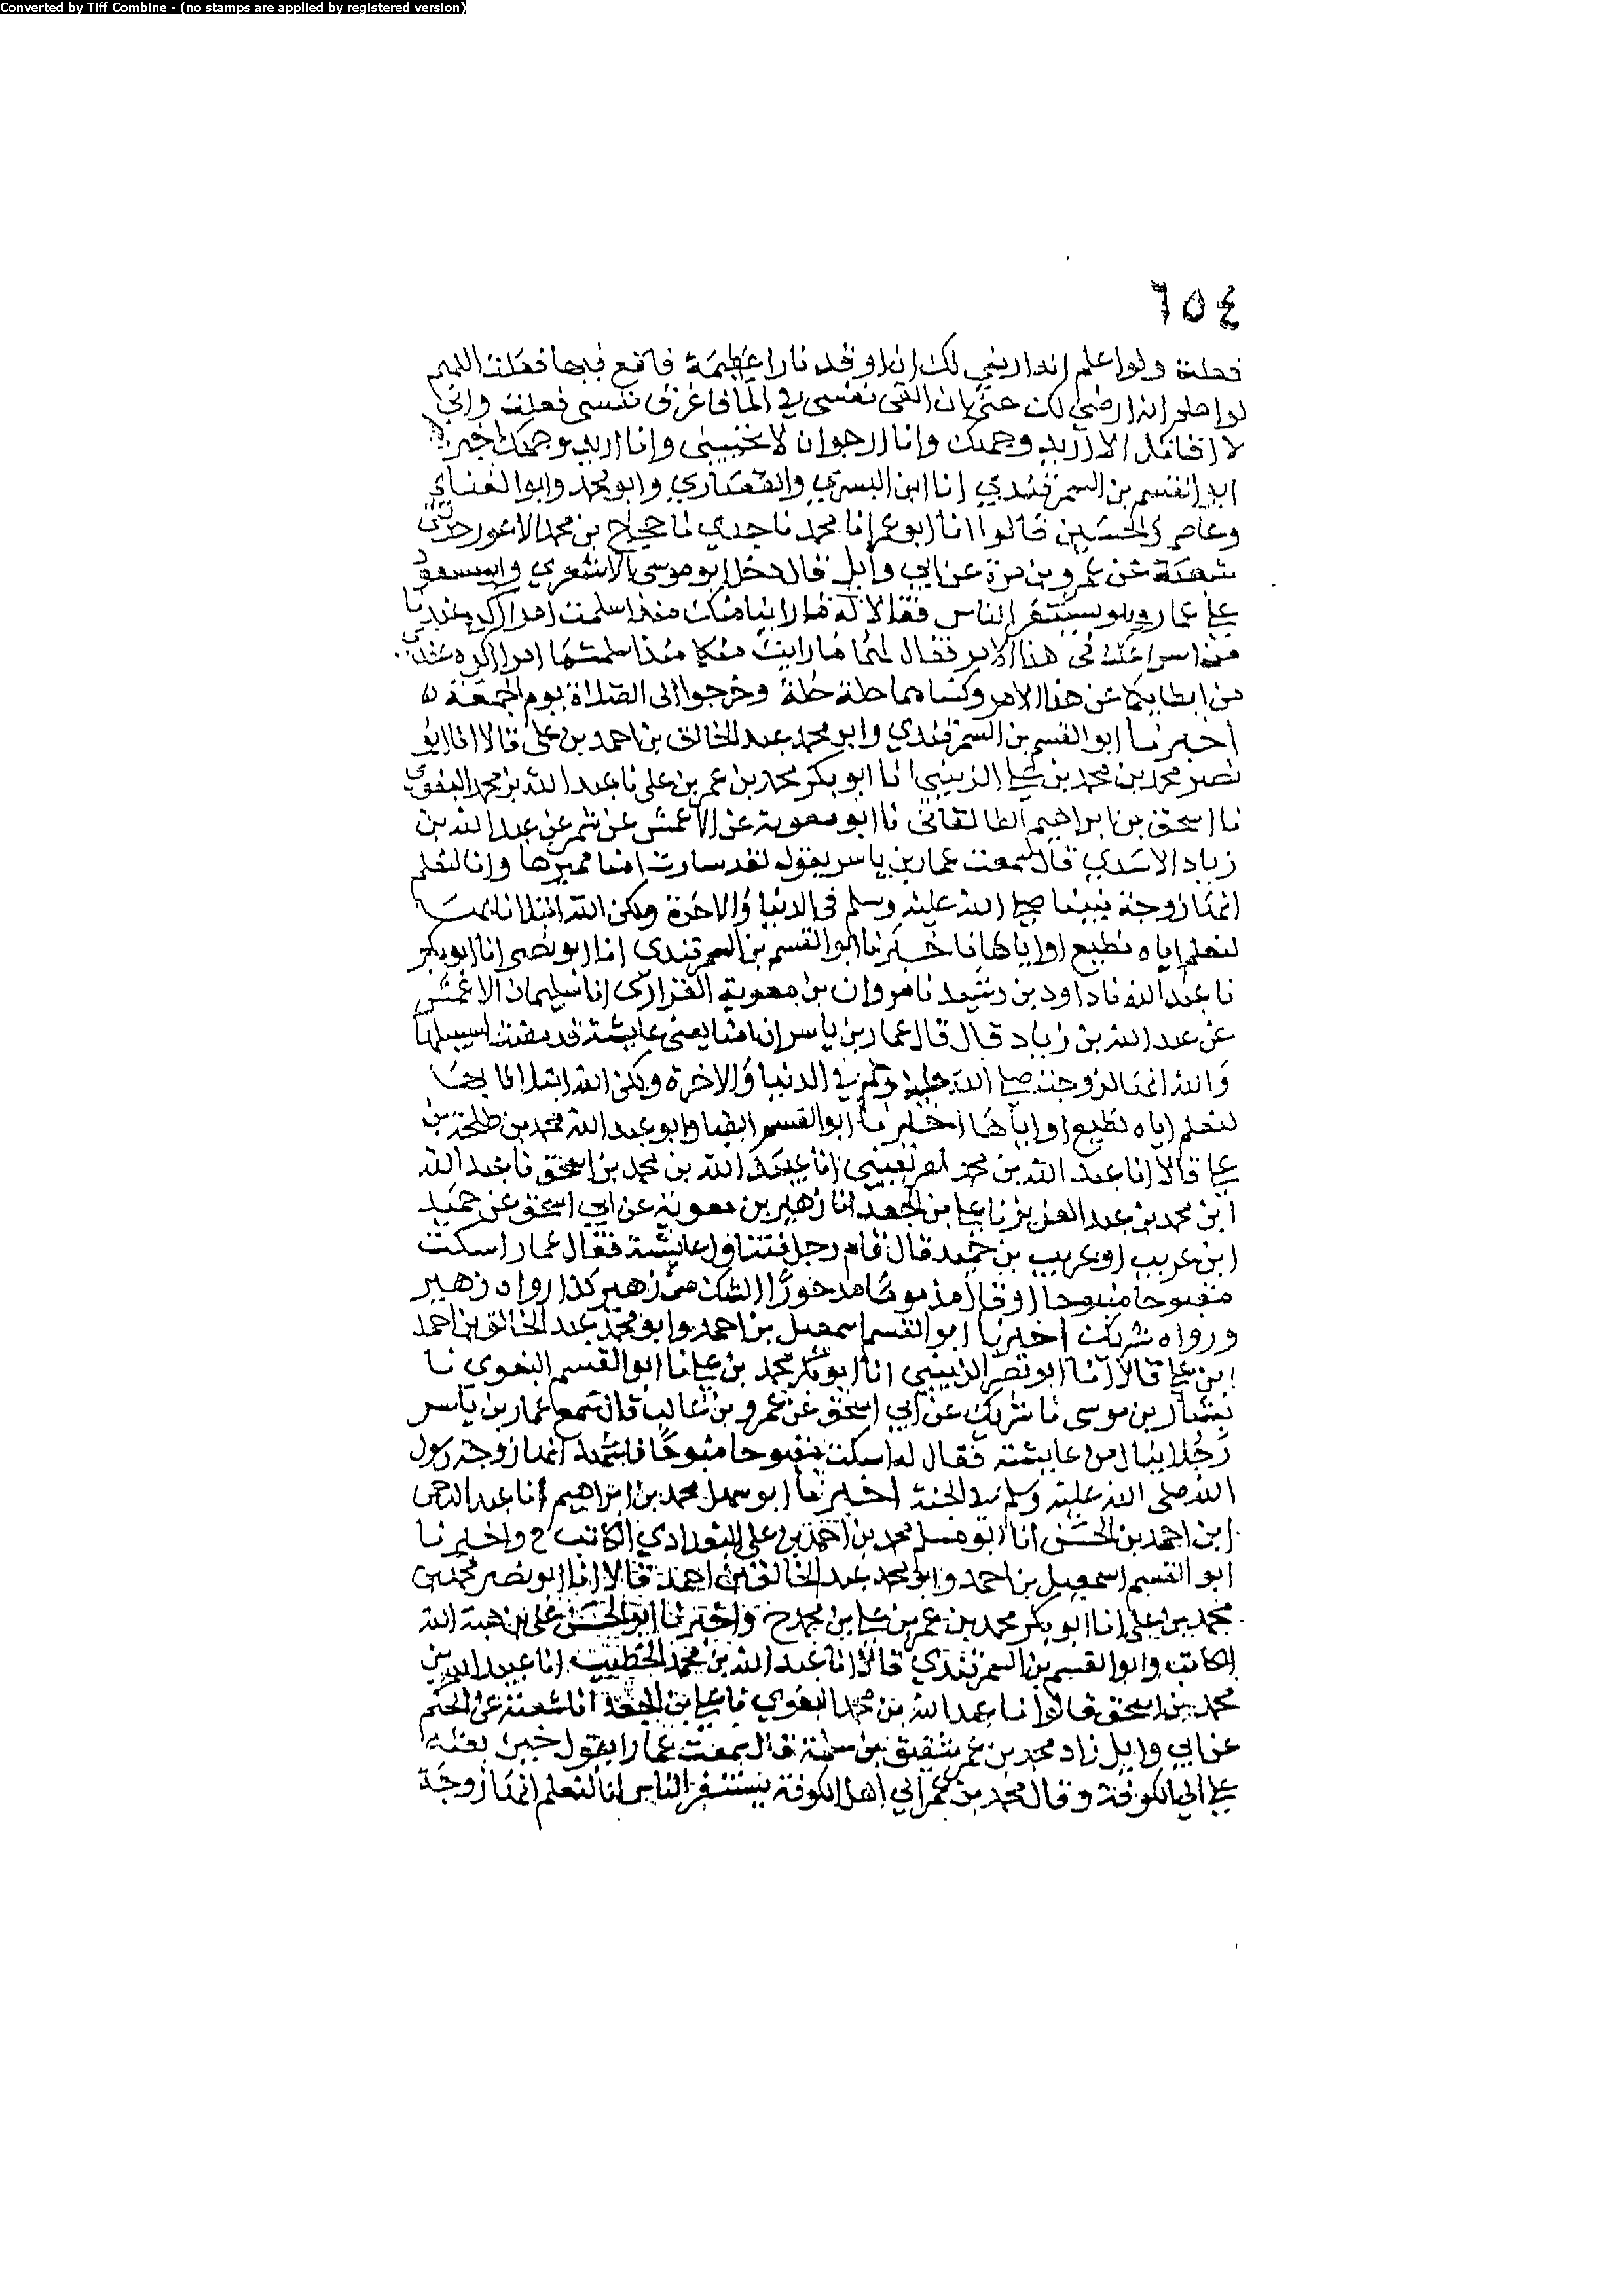 Converted by Tiff Combine - (no stamps are applied by registered version)
٦٥٤
فعلته ولو اعلم انه ارضي لك ان اوقد نارا عظيمة فاقع فيها فعلت اللهم
لو اعلم انه ارضي لك عني ان القي نفسي في الما فاغرق نفسي فعلت واني
لا اقاتل الا اريد وجهك وانا ارجو ان لا تخيبني وانا اريد وجهك اخبرنا
ابو القسم بن السمرقندي انا ابن البسري والقصاري وابو محمد وابو الغنايم
وعاصم بن الحسين قالوا انا ابو عمر انا محمد نا جدي نا حجاج بن محمد الاعور حدثني
شعبة عن عمرو بن مرة عن ابي وايل قال دخل ابو موسى الاشعري وابو مسعود
علي عمار وهو يستنفر الناس فقالا له ما راينا منك منذ اسلمت امرا اكره عندنا
من اسراعك في هذا الامر فقال لهما ما رايت منكما منذ اسلمتما امرا اكره عندي
من ابطايكما عن هذا الامر وكساهما حلة حلة وخرجوا الى الصلاة يوم الجمعة ه
اخبرنا ابو القسم بن السمرقندي وابو محمد عبد الخالق بن احمد بن علي قالا انا ابو
نصر محمد بن محمد بن علي الزينبي انا ابو بكر محمد بن عمر بن علي نا عبد الله بن محمد البغوي
نا اسحق بن ابراهيم الطالقاني نا ابو معوية عن الاعمش عن شمر عن عبد الله بن
زياد الاسدي قال سمعت عمار بن ياسر يقول لقد سارت امنا مسيرها وانا لنعلم
انها زوجة نبينا صلى الله عليه وسلم في الدنيا والاخرة ولكن الله ابتلانا بها
لنعلم اياه نطيع او اياها اخبرنا ابو القسم بن السمرقندي انا ابو نصر انا ابو بكر
نا عبد الله نا داود بن رشيد نا مروان بن معوية الفزاري انا سليمان الاعمش
عن عبد الله بن زياد قال قال عمار بن ياسر ان امنا يعني عايشة قد مضت لسبيلها
والله انها لزوجته صلى الله عليه وسلم في الدنيا والاخرة ولكن الله ابتلانا بها
لنعلم اياه نطيع او اياها اخبرنا ابو القسم ايضا وابو عبد الله محمد بن طلحة بن
علي قالا انا عبد الله بن محمد الصريفيني انا عبيد الله بن محمد بن اسحق نا عبد الله
ابن محمد بن عبد العزيز نا علي بن الجعد انا زهير بن معوية عن ابي اسحق عن حميد
ابن عريب او عريب بن حميد قال قام رجل فتناول عايشة فقال عمار اسكت
مقبوحا منبوحا او قال مذموما مدحورا الشك من زهير كذا رواه زهير
ورواه شريك اخبرنا ابو القسم اسمعيل بن احمد وابو محمد عبد الخالق بن احمد
ابن علي قالا انا ابو نصر الزينبي انا ابو بكر محمد بن علي نا ابو القسم البغوي نا
بشار بن موسى نا شريك عن ابي اسحق عن عمرو بن غالب قال سمع عمار بن ياسر
رجلا ينال من عايشة فقال له اسكت مقبوحا منبوحا فاشهد انها زوجة رسول
الله صلى الله عليه وسلم في الجنة اخبرنا ابو سهل محمد بن ابراهيم انا عبد الرحمن
ابن احمد بن الحسن انا ابو مسلم محمد بن احمد بن علي البغدادي الكاتب ح واخبرنا
ابو القسم اسمعيل بن احمد وابو محمد عبد الخالق بن احمد قالا انا ابو نصر محمد بن
محمد بن علي انا ابو بكر محمد بن عمر بن علي بن محمد ح واخبرنا ابو الحسن علي بن هبة الله
الكاتب وابو القسم بن السمرقندي قالا انا عبد الله بن محمد الخطيب انا عبيد الله بن
محمد بن اسحق قالوا نا عبد الله بن محمد البغوي نا علي بن الجعد انا شعبة عن الحكم
عن ابي وايل زاد محمد بن عمر شقيق بن سلمة قال سمعت عمارا يقول حين بعثه
علي الى الكوفة وقال محمد بن عمر الي اهل الكوفة يستنفر الناس انا لنعلم انها زوجة